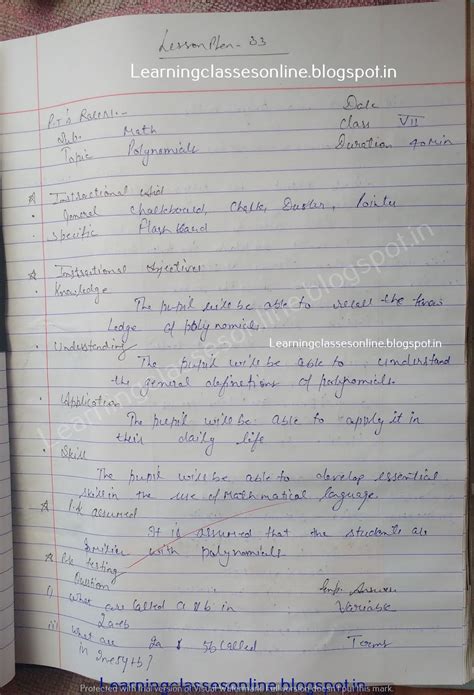 Lesson Plan - 33
Learningclassesonline.blogspot.in
Date
P.T's Roll No. -
Class VII
Sub. Math
Duration 40 min
Topic Polynomials
Instructional Aid
General Chalkboard, Chalk, Duster, Pointer
Specific Flash Card
Learningclassesonline.blogspot.in
Instructional Objectives
Knowledge
The pupil will be able to recall the know
ledge of polynomials.
Learningclassesonline.blogspot.in
Understanding
The pupil will be able to understand
the general definitions of polynomials.
Application
The pupil will be able to apply it in
their daily life
Skill
The pupil will be able to develop essential
skill in the use of Mathmatical language.
P.k assumed
It is assumed that the students are
similier with polynomials.
P.k Testing
Question Exp. Answer
i) What are called a & b in Variable
2a+b
ii) What are 2a & 5b called Terms
in
Protected with free version of Watermarkly. Full version doesn't put this mark.
Learningclassesonline.blogspot.in